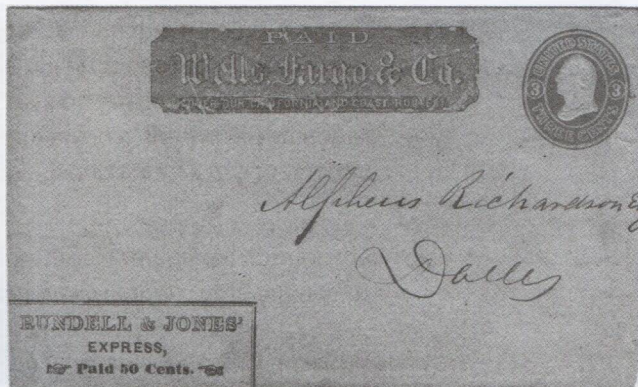 PAID
Wells, Fargo & Co.
OVER OUR CALIFORNIA AND COAST ROUTES
UNITED STATES
3 3
THREE CENTS
Alpheus Richardson
Dalles
RUNDELL & JONES'
EXPRESS,
Paid 50 Cents.